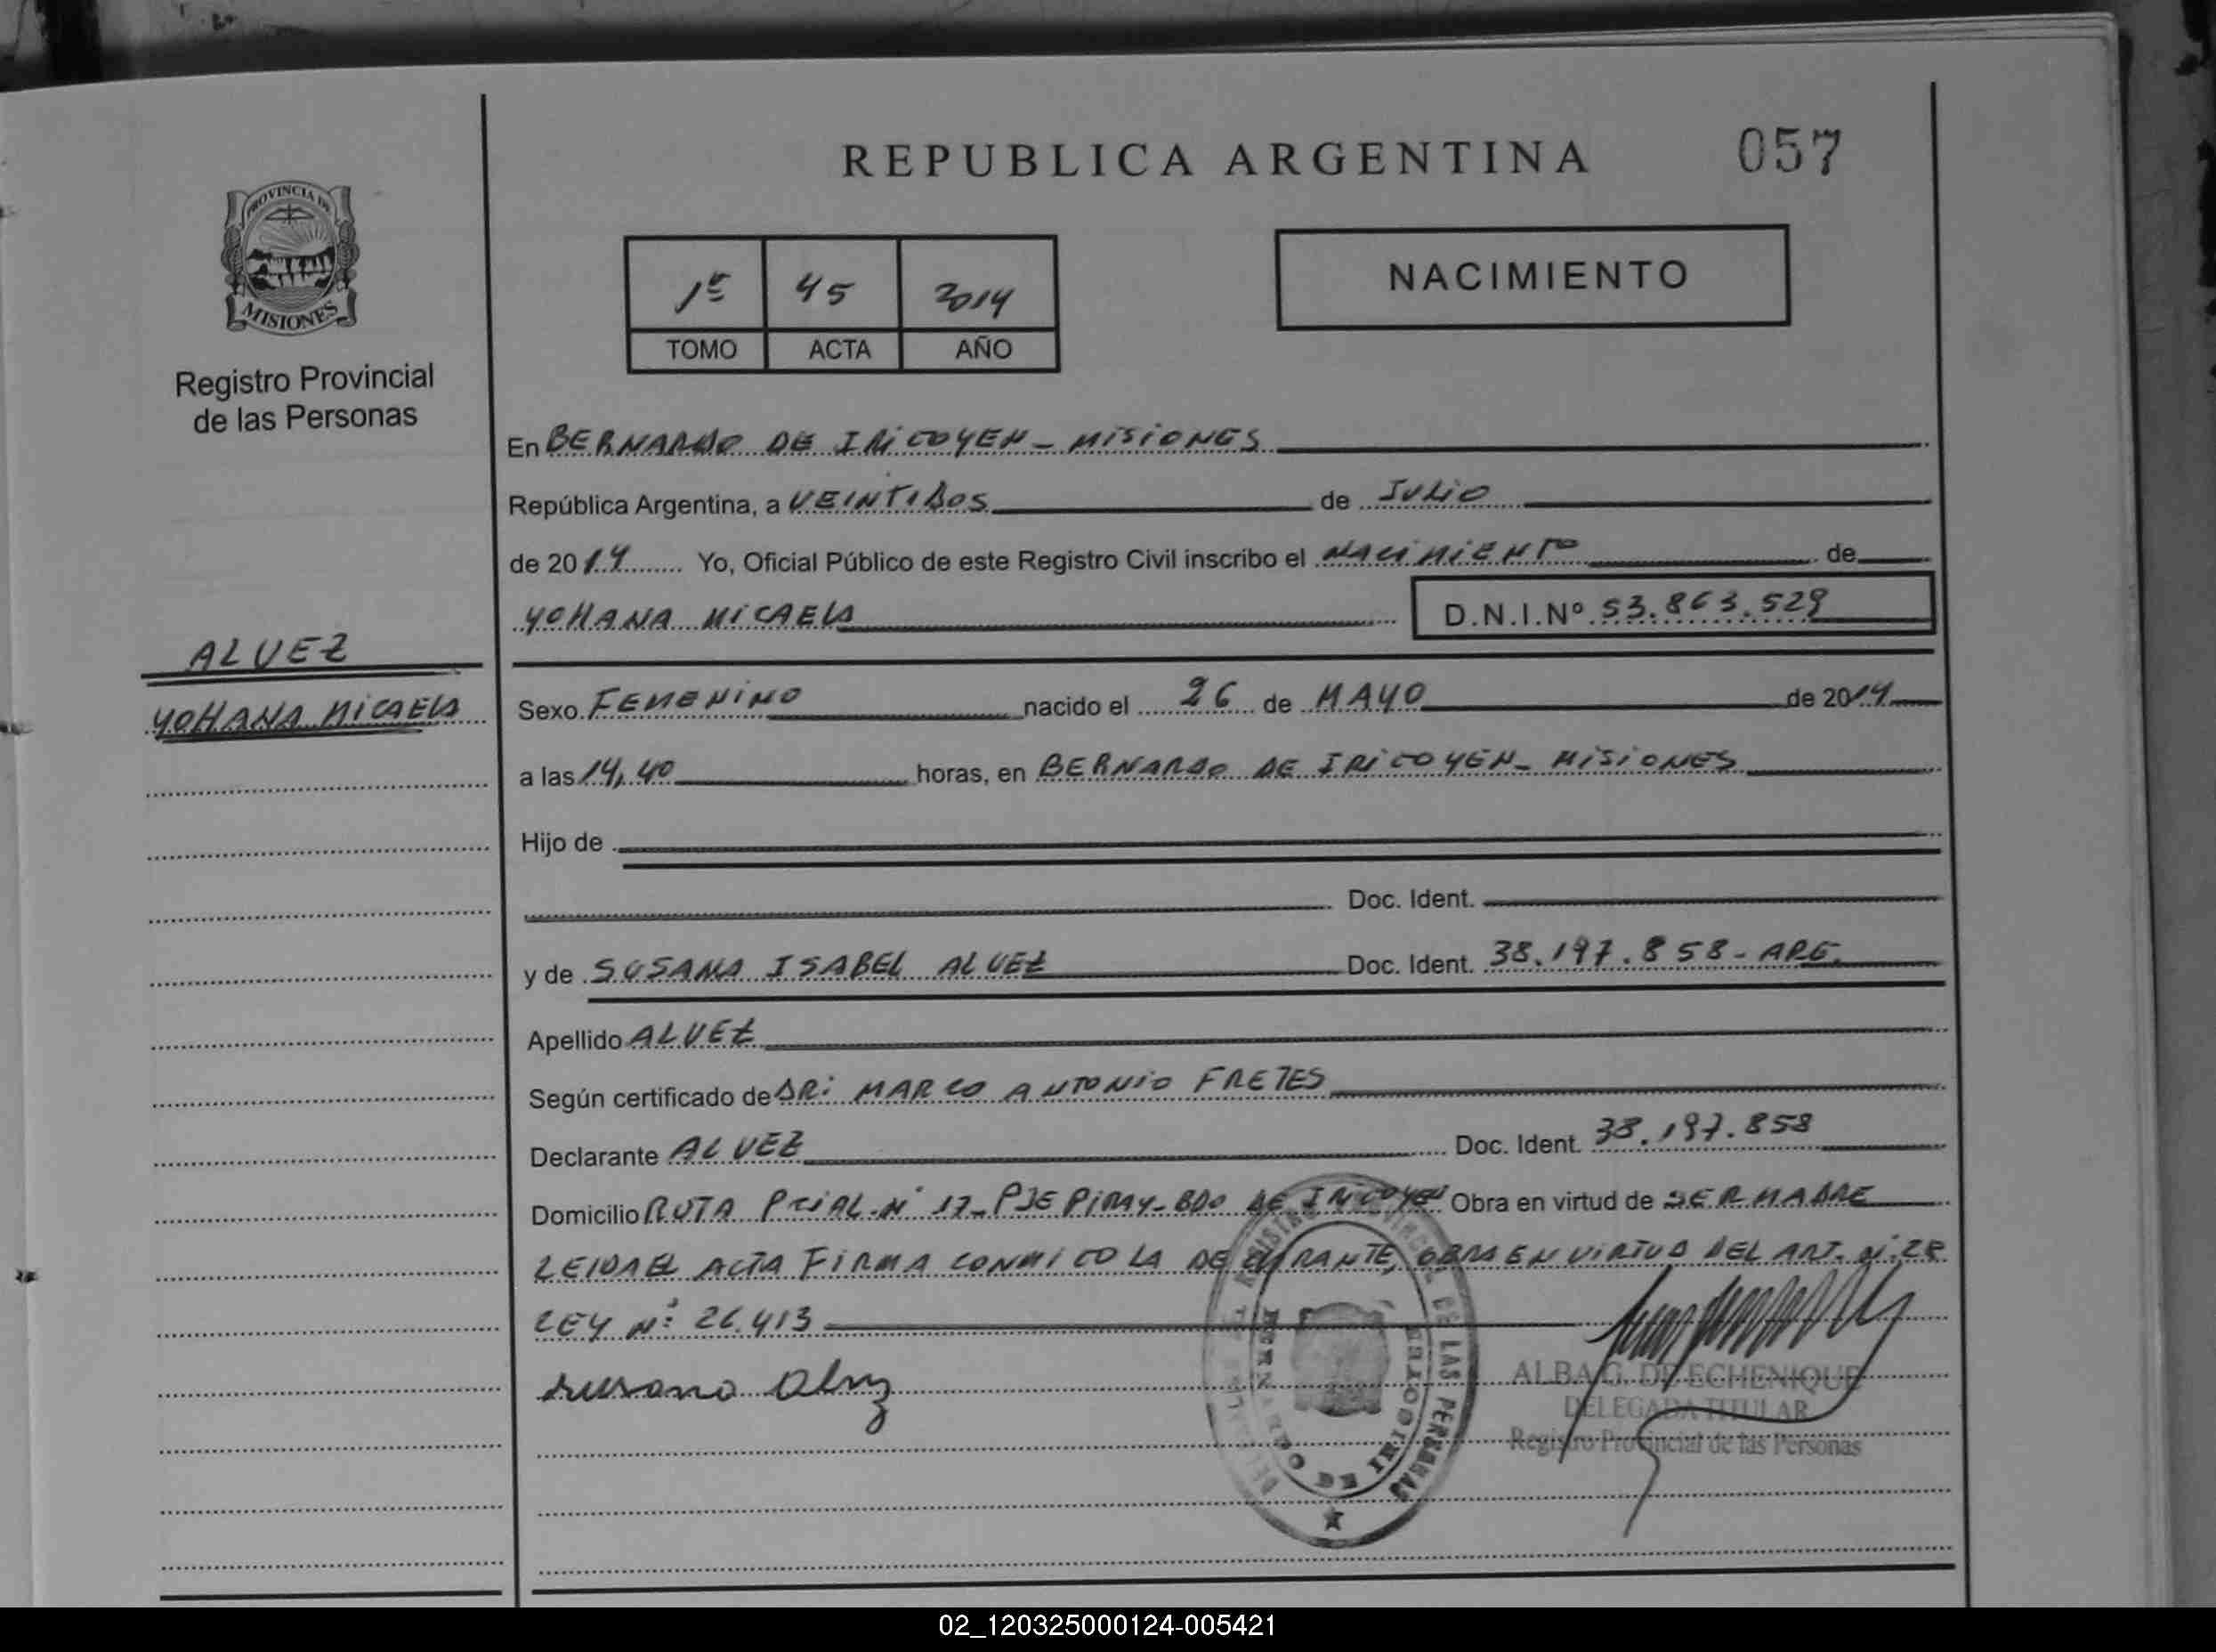 REPUBLICA ARGENTINA
057
PROVINCIA DE
MISIONES
Registro Provincial
de las Personas
1º 45 2014
TOMO ACTA AÑO
NACIMIENTO
En BERNARDO DE IRIGOYEN - MISIONES
República Argentina, a VEINTIDOS de JULIO
de 2014 Yo, Oficial Público de este Registro Civil inscribo el NACIMIENTO de
YOHANA MICAELA D.N.I.Nº 53.863.529
ALVEZ
YOHANA MICAELA
Sexo FEMENINO nacido el 26 de MAYO de 2014
a las 14,40 horas, en BERNARDO DE IRIGOYEN - MISIONES
Hijo de
Doc. Ident.
y de SUSANA ISABEL ALVEZ Doc. Ident. 38.197.858 - ARG.
Apellido ALVEZ
Según certificado de DR: MARCO ANTONIO FRETES
Declarante ALVEZ Doc. Ident. 38.197.858
Domicilio RUTA PCIAL. Nº 17 - PJE PIRAY - BDO DE IRIGOYEN Obra en virtud de SER MADRE
LEIDA EL ACTA FIRMA CONMIGO LA DECLARANTE, OBRA EN VIRTUD DEL ART. Nº: 28
LEY Nº: 26.413
Susana Alvez
ALBA G. DE ECHENIQUE
DELEGADA TITULAR
Registro Provincial de las Personas
REGISTRO PROVINCIAL DE LAS PERSONAS
BERNARDO DE IRIGOYEN
02_120325000124-005421